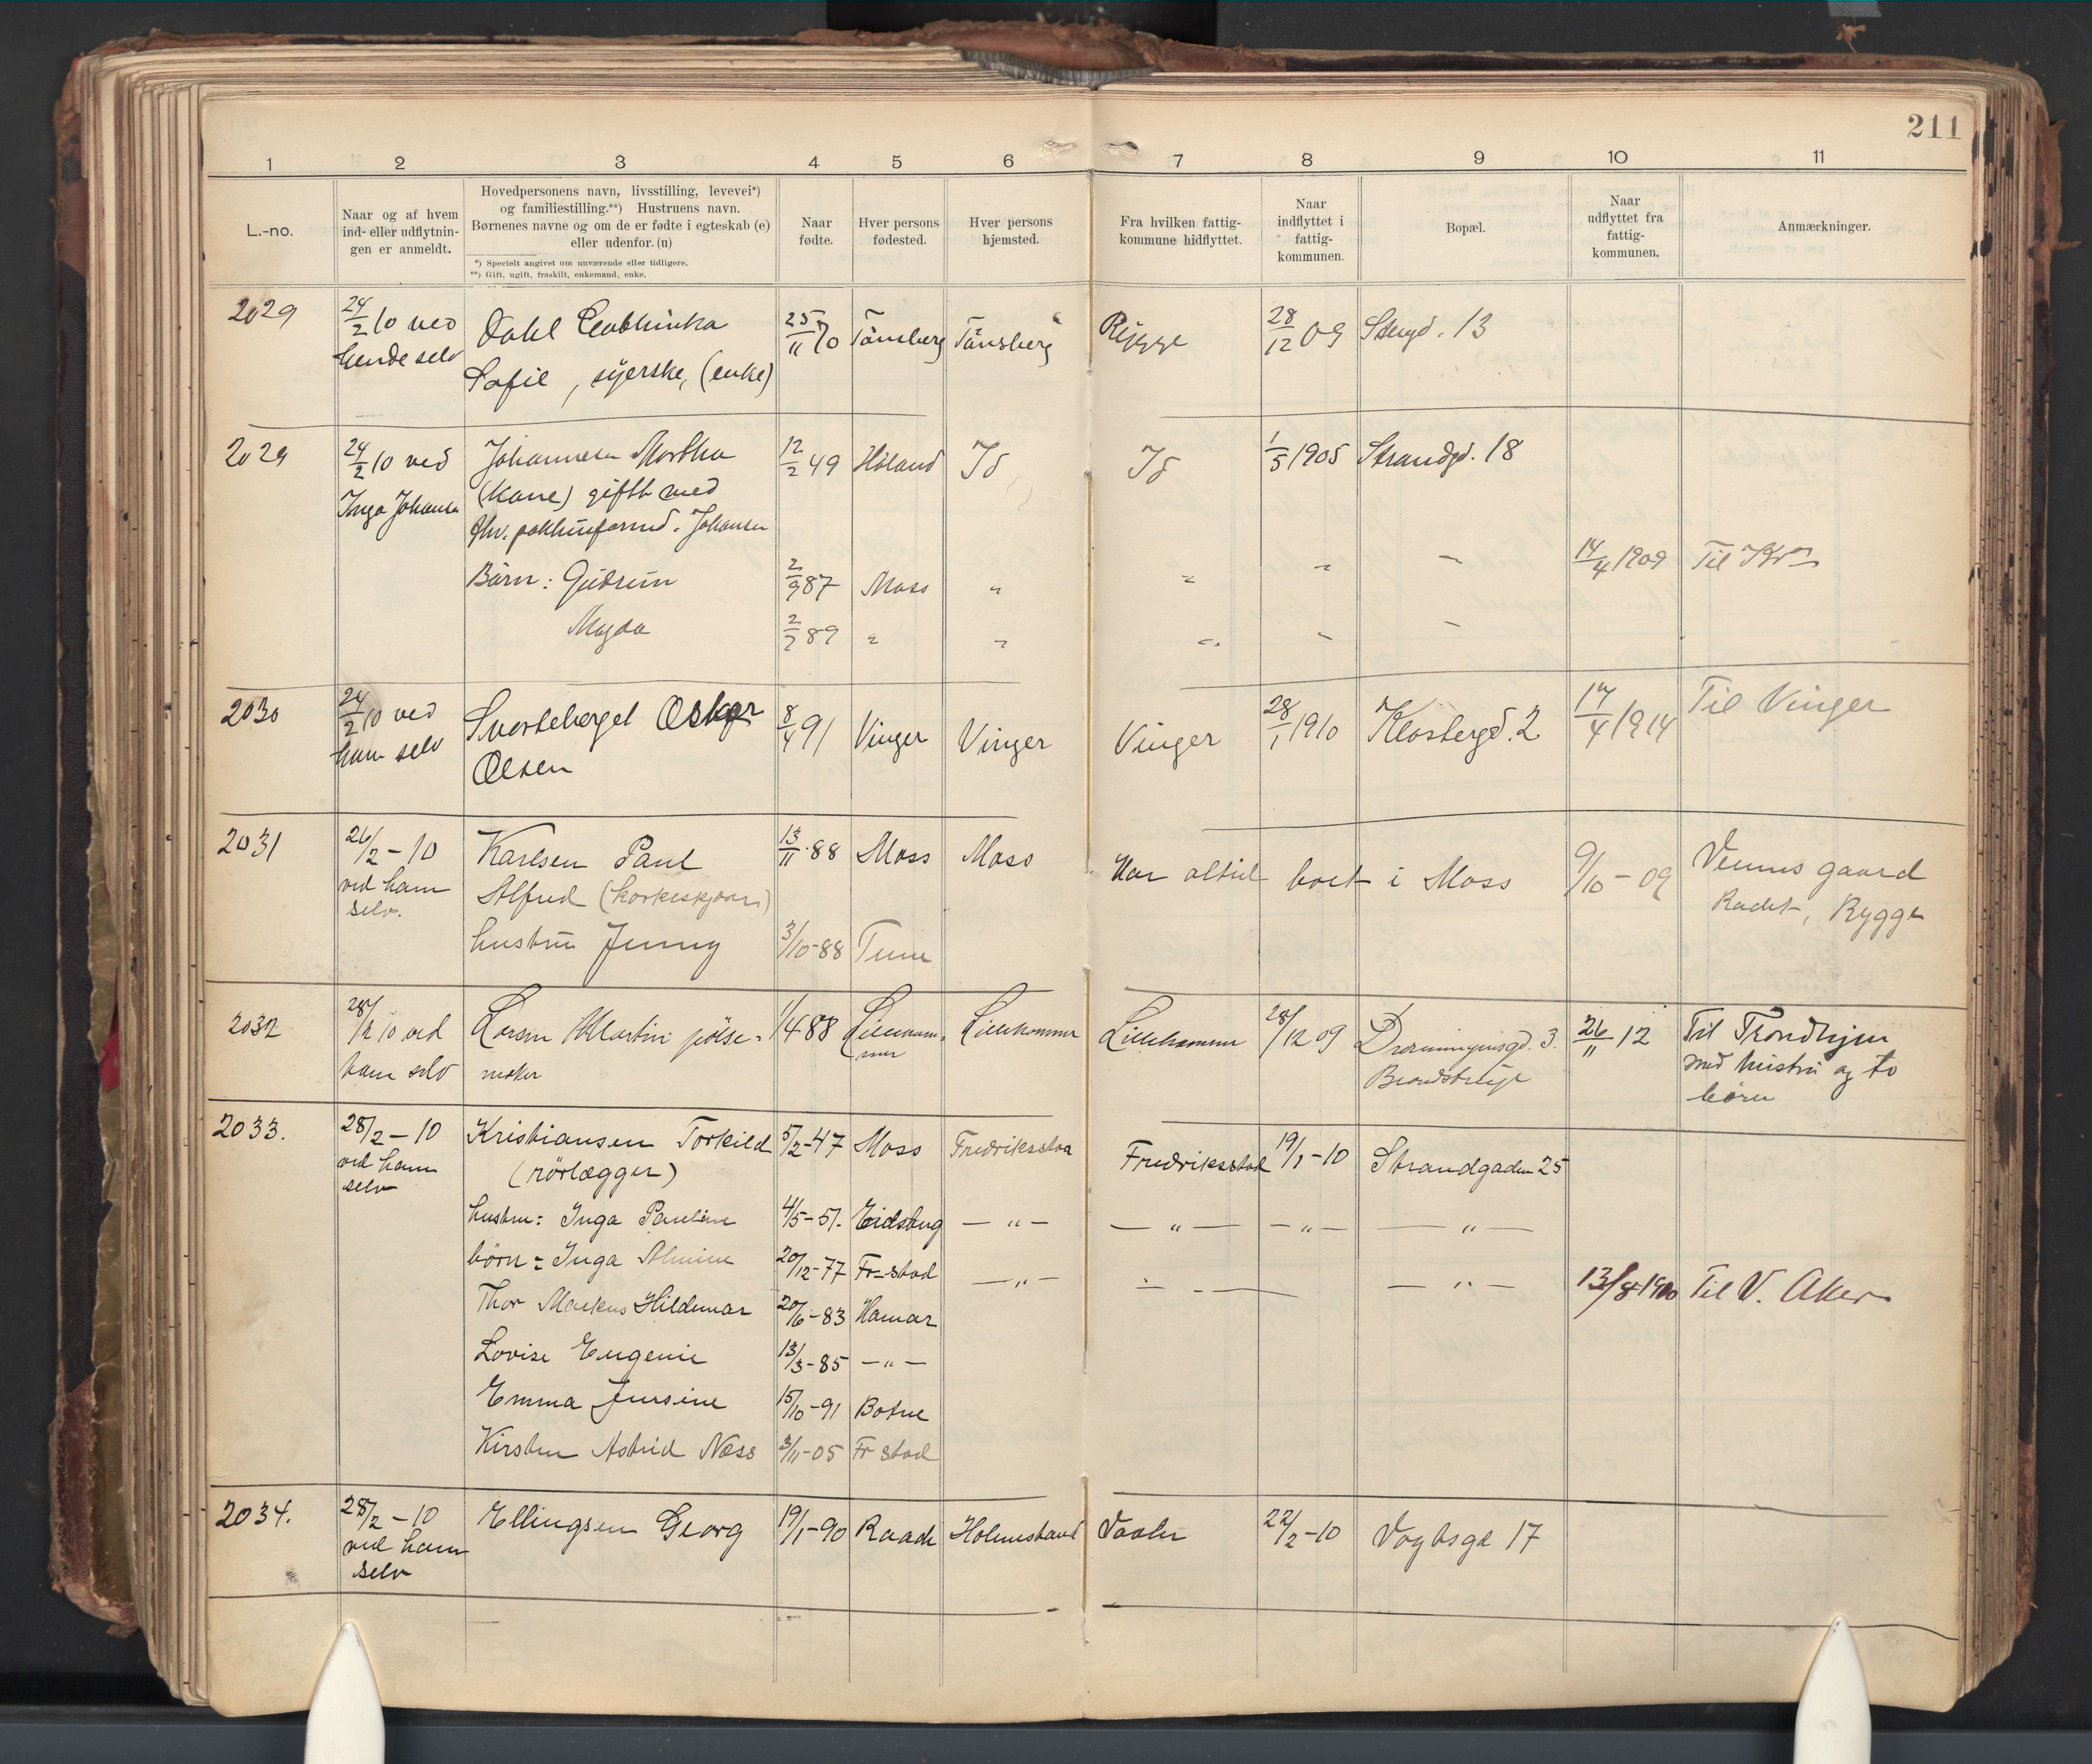 211
1 2 3 4 5 6 7 8 9 10 11
L.-no.
Naar og af hvem
ind- eller udflytnin-
gen er anmeldt.
Hovedpersonens navn, livsstilling, levevei*)
og familiestilling.**) Hustruens navn.
Børnenes navne og om de er fødte i egteskab (e)
eller udenfor. (u)
*) Specielt angivet om nuværende eller tidligere.
**) Gift, ugift, fraskilt, enkemand, enke.
Naar
fødte.
Hver persons
fødested.
Hver persons
hjemsted.
Fra hvilken fattig-
kommune hidflyttet.
Naar
indflyttet i
fattig-
kommunen.
Bopæl.
Naar
udflyttet fra
fattig-
kommunen.
Anmærkninger.
2029 24/2 10 ved Dahl 25/11 70 Tönsberg Tönsberg Rygge 28/12 09 Stengd. 13
hende selv Sofie, syerske, (enke)
2029 24/2 10 ved Johannesen Martha 12/2 49 Höland Id Id 1/5 1905 Strandgd. 18
Inga Johansen (kone) gift med
fhv. pakhusformd. Johansen
Börn: Gudrun 2/9 87 Moss " " " - 14/4 1909 Til Kra
Magda 2/7 89 " " " - -
2030 24/2 10 ved Svarteberget Oskar 8/4 91 Vinger Vinger Vinger 28/1 1910 Klostergd. 2 17/4 1914 Til Vinger
ham selv Olsen
2031 26/2-10 Karlsen Paul 13/11-88 Moss Moss Har altid boet i Moss 9/10-09 Venus gaard
ved ham Alfred (korkeskjærer) Radet, Rygge
selv.
hustru Jenny 3/10-88 Tune
2032 28/2 10 ved Larsen Martin pölse- 1/4 88 Lilleham- Lillehammer Lillehammer 28/12 09 Dronningensgd. 3. 26/11 12 Til Trondhjem
ham selv maker mer med hustru og to
börn
2033. 28/2-10 Kristiansen Torkild 5/2-47 Moss Fredriksstad Fredriksstad 19/1-10 Strandgaden 25
ved ham (rörlægger)
selv
hustru: Inga Pauline 4/5-51. Eidsberg — " — — " — — " — — " —
börn: Inga Almine 20/12-77 Fr-stad — " — — " — 13/8-1910 Til V. Aker
Thor Markus Hildemar 20/6-83 Hamar
Lovise Eugenie 13/3-85 — " —
Emma Jensine 15/10-91 Botne
Kirsten Astrid Næss 3/11-05 Fr stad
2034. 28/2-10 Ellingsen Georg 19/1-90 Raade Holmestrand Vaaler 22/2-10 Vogtsgd 17
ved ham
selv